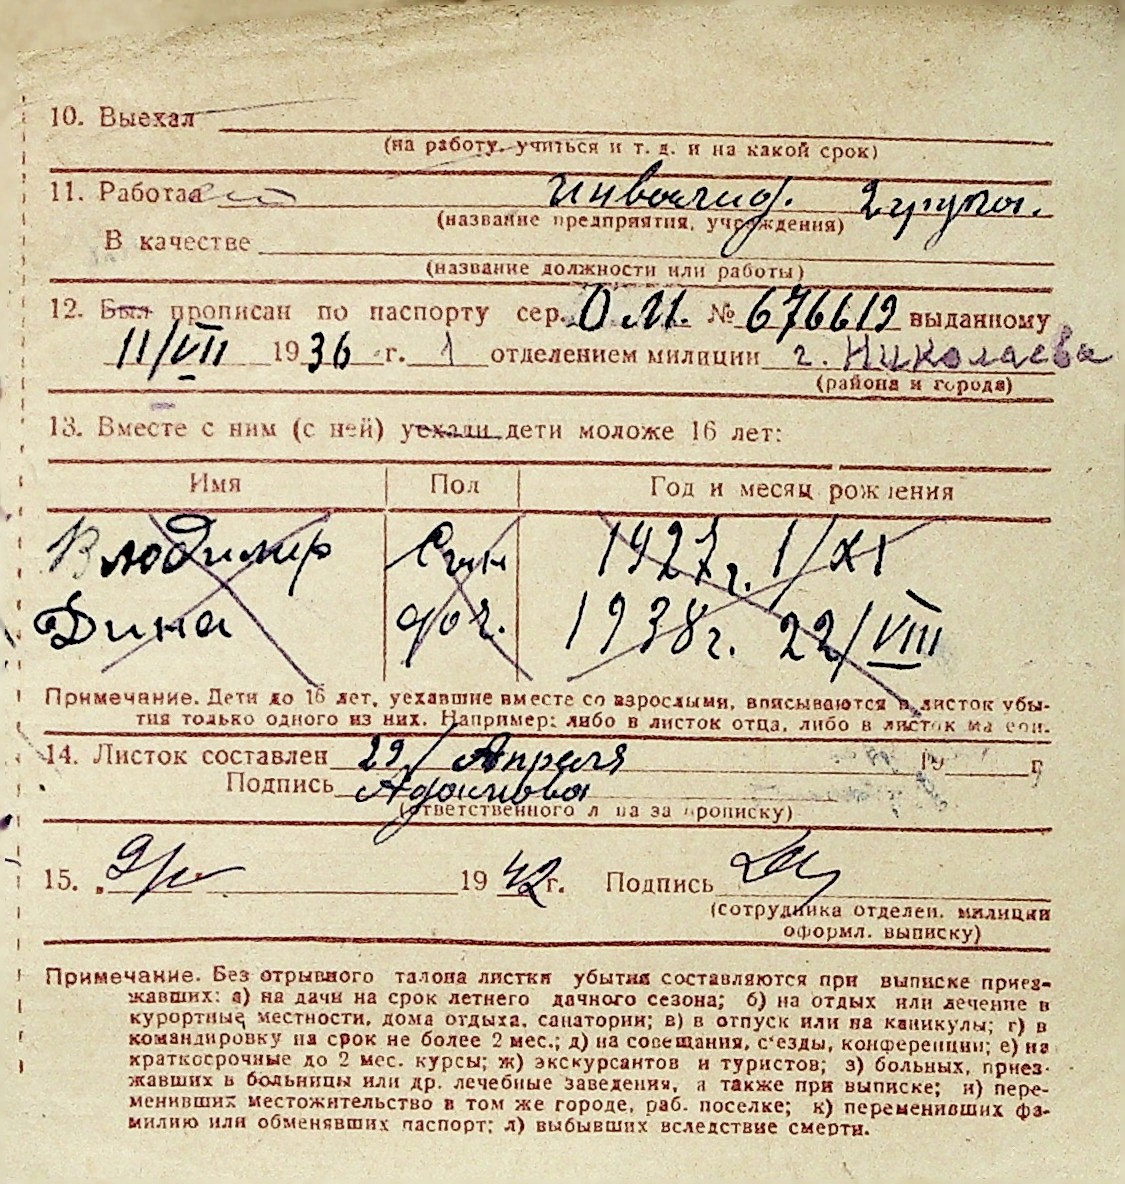 10. Выехал
(на работу, учиться и т. д. и на какой срок)
11. Работает инвалид. 2 группы.
(название предприятия, учреждения)
В качестве
(название должности или работы)
12. Был прописан по паспорту сер. О.М. № 676619 выданному
11/VII 1936 г. 1 отделением милиции г. Николаева
(района и города)
13. Вместе с ним (с ней) уехали дети моложе 16 лет:
Имя Пол Год и месяц рождения
Владимир Сын 1927 г. 1/XI
Дина доч. 1938 г. 22/VIII
Примечание. Дети до 16 лет, уехавшие вместе со взрослыми, вписываются в листок убы-
тия только одного из них. Например: либо в листок отца, либо в листок матери.
14. Листок составлен 29/ Апреля 19 г.
Подпись
(ответственного лица за прописку)
15. 1942 г. Подпись
(сотрудника отделен. милиции
оформл. выписку)
Примечание. Без отрывного талона листки убытия составляются при выписке приез-
жавших: а) на дачи на срок летнего дачного сезона; б) на отдых или лечение в
курортные местности, дома отдыха, санатории; в) в отпуск или на каникулы; г) в
командировку на срок не более 2 мес.; д) на совещания, с'езды, конференции; е) на
краткосрочные до 2 мес. курсы; ж) экскурсантов и туристов; з) больных, приез-
жавших в больницы или др. лечебные заведения, а также при выписке; и) пере-
менивших местожительство в том же городе, раб. поселке; к) переменивших фа-
милию или обменявших паспорт; л) выбывших вследствие смерти.